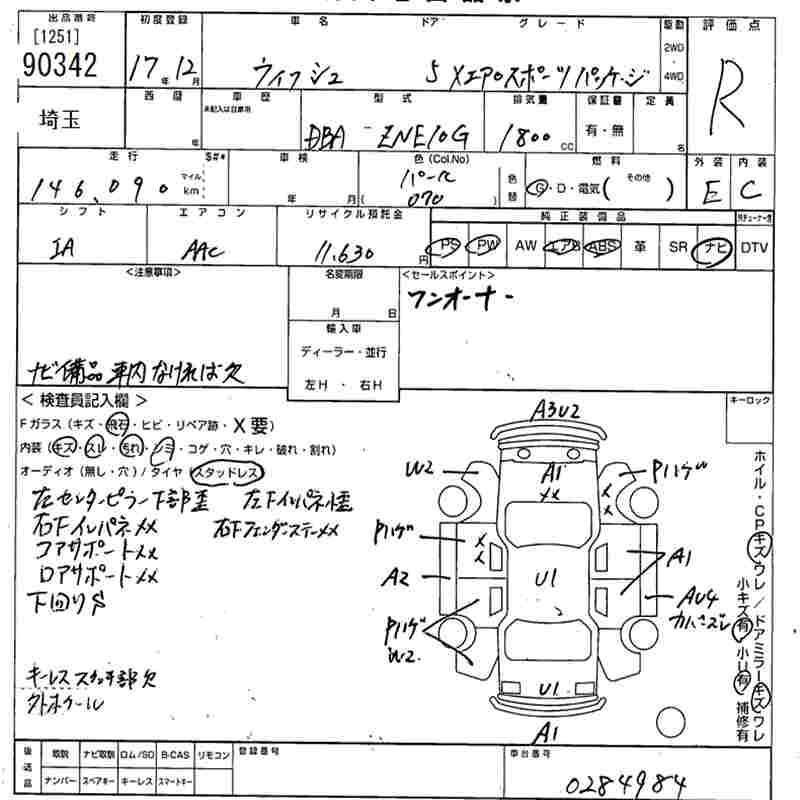 出品番号 初度登録 車名 ドア グレード 駆動 評価点
[1251]
90342 17年12月 ウィッシュ 5 Xエアロスポーツパッケージ 2WD・4WD R
埼玉 西暦 年 車歴 未記入は自家用 型式 DBA-ZNE10G 排気量 1800 CC 保証書 有・無 定員 名
走行 S#* 車検 色 (Col.No) 燃料 外装 内装
146,090 マイル km 年 月 パール ( 070 ) 色替 G・D・電気( その他 ) E C
シフト エアコン リサイクル預託金 純正装備品
IA AAC 11,630円 PS PW AW エアB ABS 革 SR ナビ DTV
<注意事項> 名変期限 <セールスポイント>
月 日 ワンオーナー
輸入車
ディーラー・並行
左H・右H
ナビ備品車内なければ欠
<検査員記入欄> キーロック
Fガラス (キズ・飛石・ヒビ・リペア跡・X要)
内装 (キズ・スレ・汚れ・シミ・コゲ・穴・キレ・破れ・割れ)
オーディオ (無し・穴) / タイヤ (スタッドレス)
左センターピラー下部歪 左下インパネ歪
右下インパネXX 右下フェンダーステーXX
コアサポートXX
ロアサポートXX
下回りS
キーレススイッチ部欠
A3U2
W2 A1 Pハゲ
XX XX
Pハゲ XX
A2 U1 A1
AU4
Pハゲ
W2
U1
A1
ホイル・CPキズウレ/ドアミラーキズワレ
小キズ有 小U有 補修有
後送品 取説 ナビ取説 ロム/SD B-CAS リモコン 登録番号 車台番号
ナンバー スペアキー キーレス スマートキー 0284984